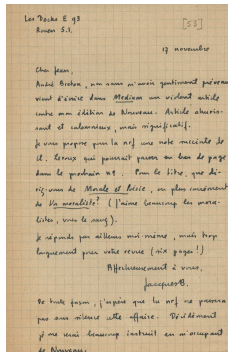 Les Docks E 93
Rouen S.I.
[53]
17 novembre
Cher Jean,
André Breton, non sans m'avoir gentiment prévenu
vient d'écrire dans Medium un violent article
contre mon édition de Nouveau. Article ahuris-
sant et calomnieux, mais significatif.
Je vous propose pour la nrf une note succincte de
qui pourrait passer en bas de page
dans le prochain n°. Pour le titre, que di-
riez-vous de Morale et Poésie, ou plus simplement
de Un moraliste? (J'aime beaucoup les mora-
listes, vous le savez).
Je réponds par ailleurs moi-même, mais trop
longuement pour votre revue (six pages!)
Affectueusement à vous,
Jacques B.
De toute façon, j'espère que la nrf ne passera
pas sous silence cette affaire. Décidément
je me serai beaucoup instruit en m'occupant
de Nouveau.